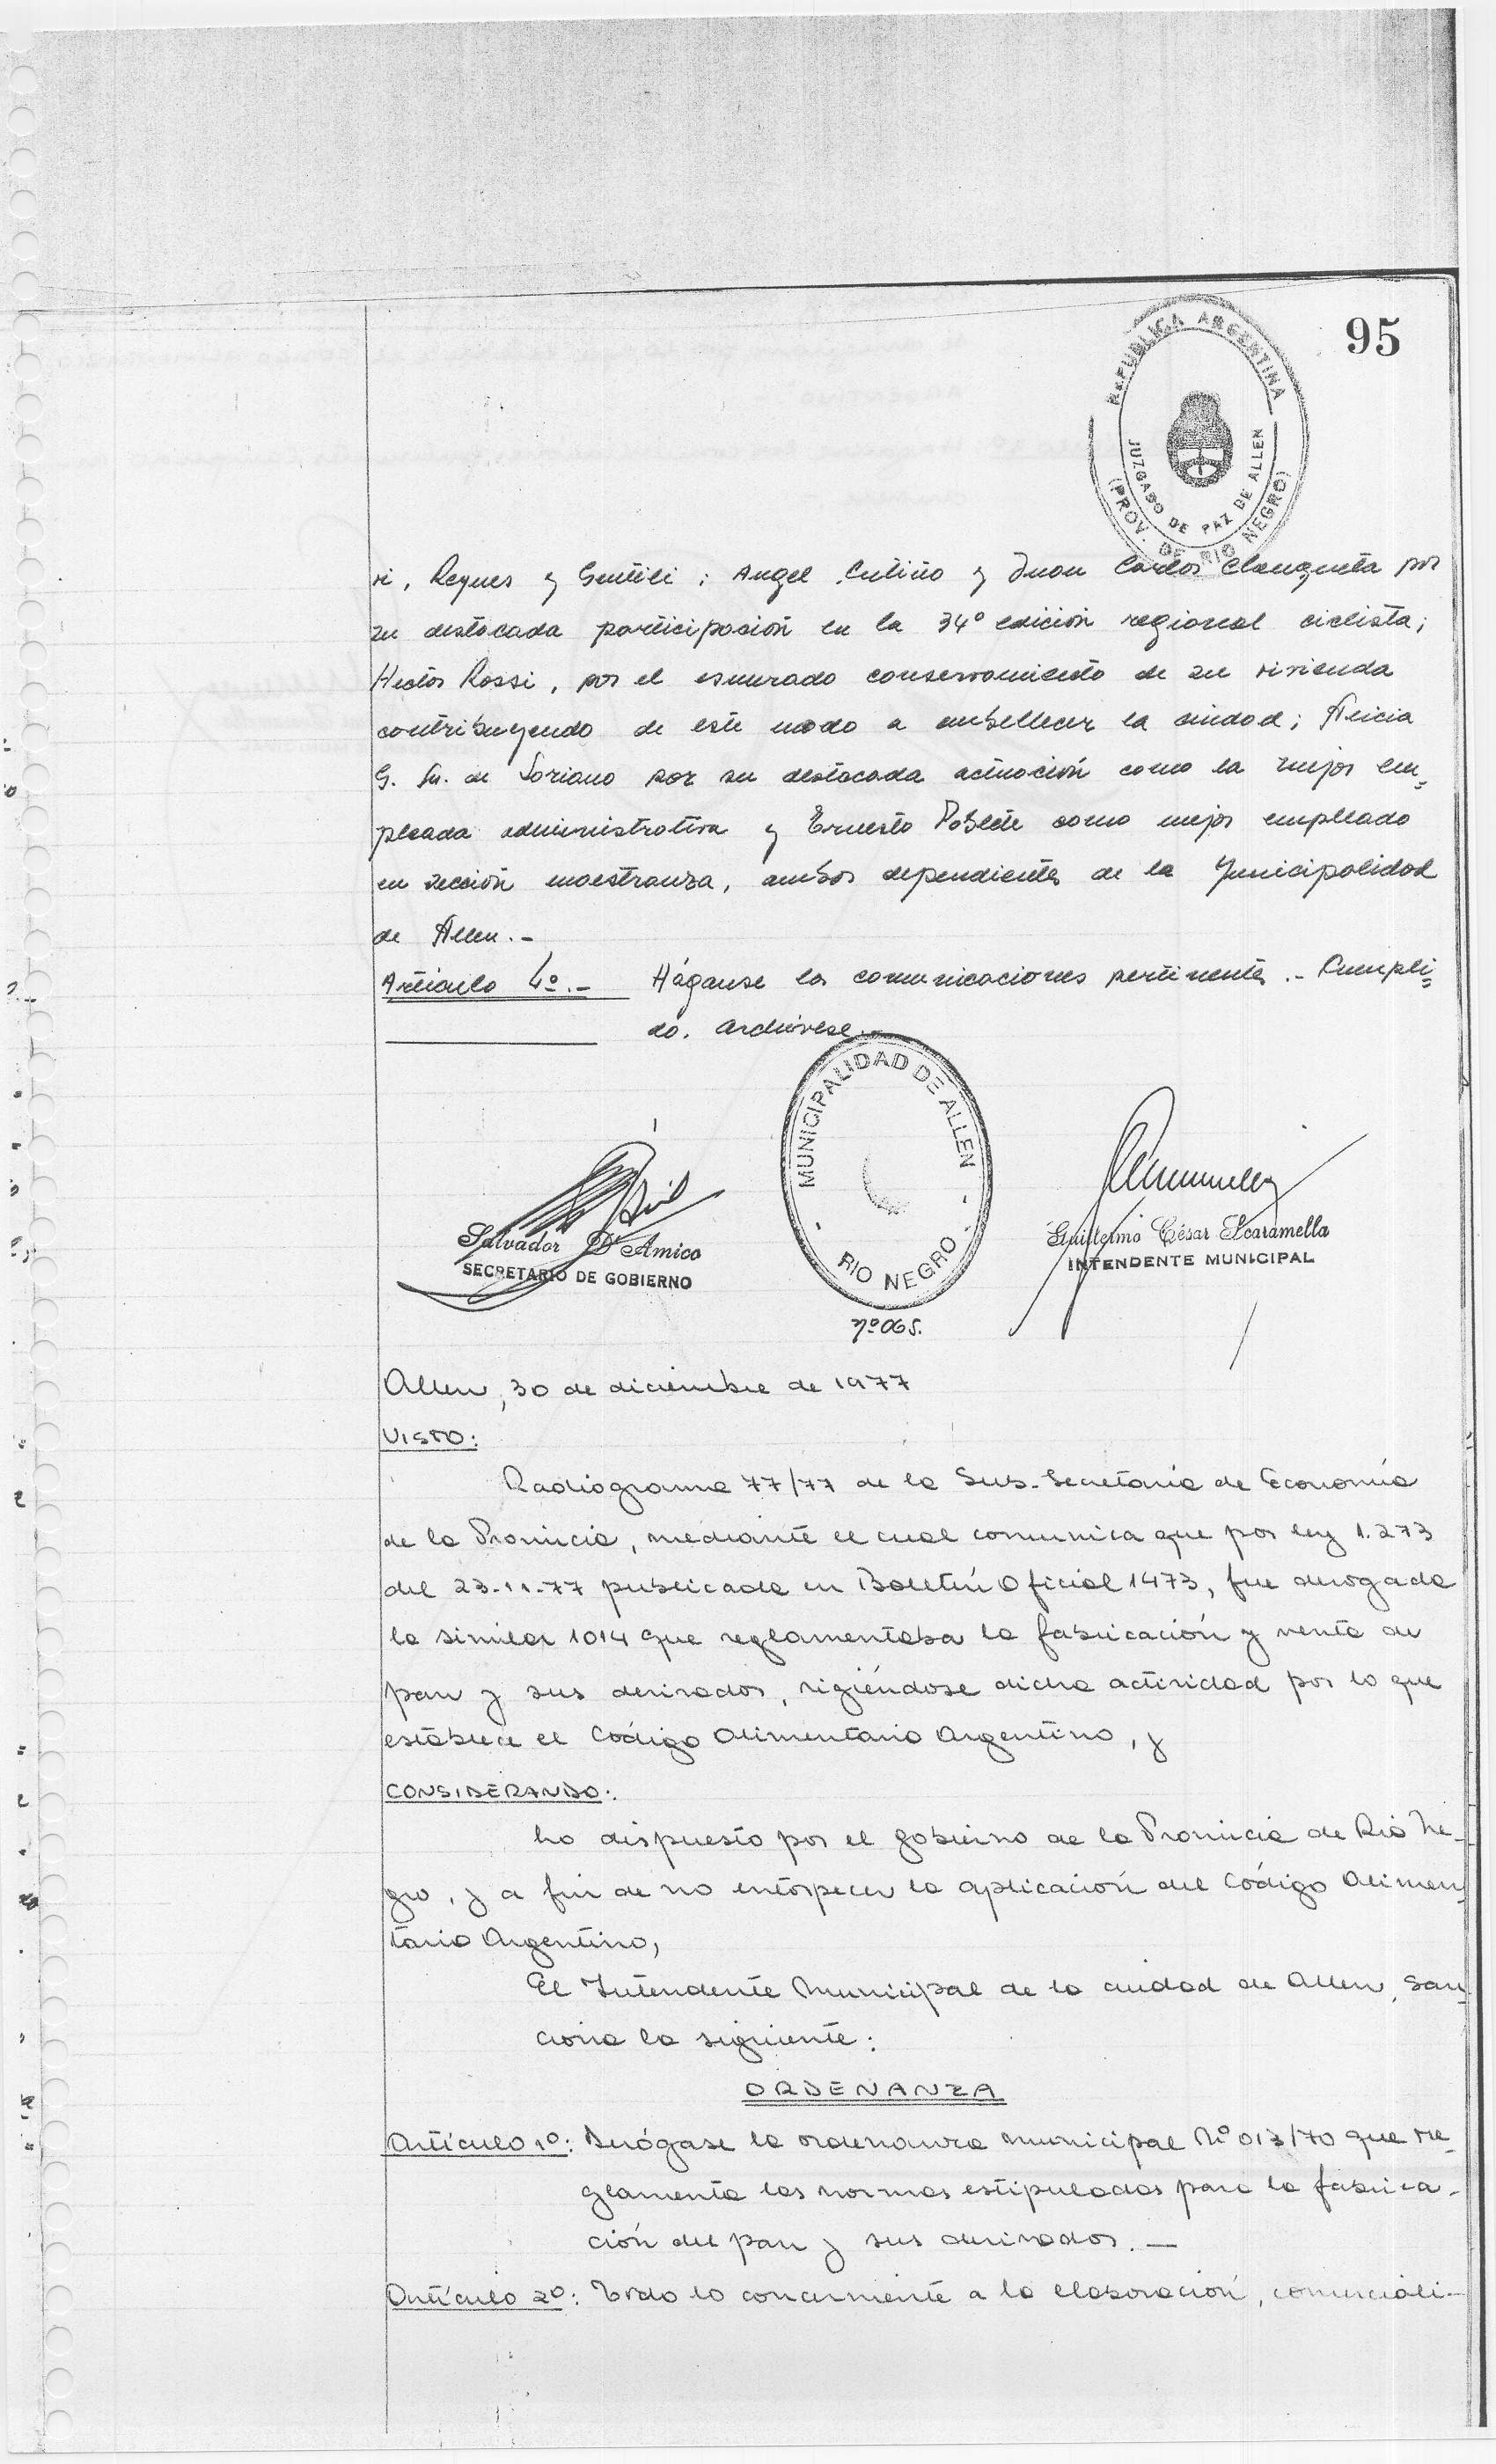 95
REPUBLICA ARGENTINA
JUZGADO DE PAZ DE ALLEN
(PROV. DE RIO NEGRO)
ri, Reques y Gentili; Angel Cutiño y Juan Carlos por
su destacada participación en la 34° edición regional ciclista;
Hector Rossi, por el esmerado conservamiento de su vivienda
contribuyendo de este modo a embellecer la ciudad; Alicia
G. de Soriano por su destacada actuación como la mejor em-
pleada administrativa y Ernesto Poblete como mejor empleado
en sección maestranza, ambos dependientes de la Municipalidad
de Allen.-
Artículo 4º.- Háganse las comunicaciones pertinentes.- Cumpli-
do. archívese.-
MUNICIPALIDAD DE ALLEN
- RIO NEGRO -
Salvador D'Amico
SECRETARIO DE GOBIERNO
Guillermo César Scaramella
INTENDENTE MUNICIPAL
Nº 065.
Allen, 30 de diciembre de 1977
VISTO:
Radiograma 77/77 de la Sub-Secretaría de Economía
de la Provincia, mediante el cual comunica que por ley 1.273
del 23-11-77 publicada en Boletín Oficial 1473, fue derogada
la similar 1014 que reglamentaba la fabricación y venta de
pan y sus derivados, rigiéndose dicha actividad por lo que
establece el Código Alimentario Argentino, y
CONSIDERANDO:
Lo dispuesto por el gobierno de la Provincia de Río Ne-
gro, y a fin de no entorpecer la aplicación del Código Alimen-
tario Argentino,
El Intendente Municipal de la ciudad de Allen, san-
ciona la siguiente:
ORDENANZA
Artículo 1º: Derógase la ordenanza municipal Nº 013/70 que re-
glamenta las normas estipuladas para la fabrica-
ción del pan y sus derivados.-
Artículo 2º: Todo lo concerniente a la elaboración, comerciali-